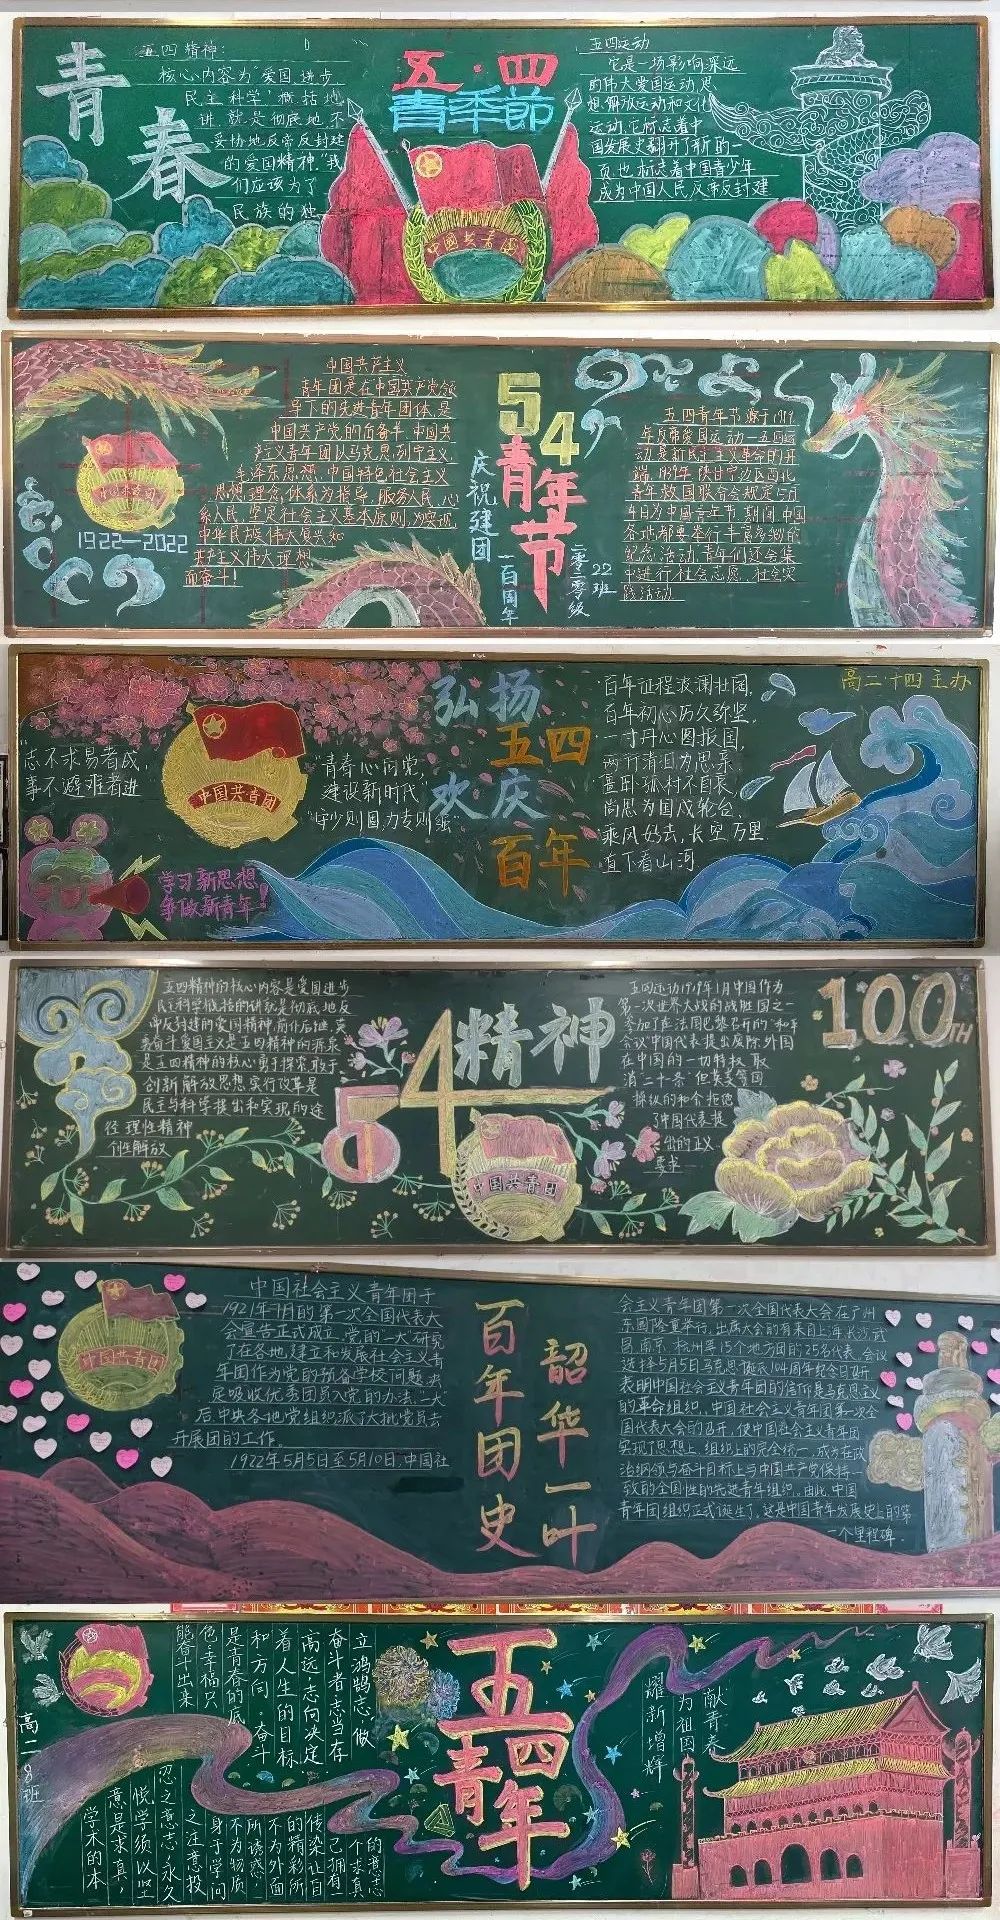 青春
五四精神:
核心内容为"爱国、进步、
民主、科学",概括地
讲,就是彻底地、不
妥协地反帝反封建
的爱国精神。"我
们应该为了
民族的独
五·四
青年節
中國共青团
五四运动
它是一场影响深远
的伟大爱国运动、思
想解放运动和文化
运动,它标志着中
国发展史翻开了新的一
页,也标志着中国青少年
成为中国人民反帝反封建
1922—2022
中国共产主义
青年团是在中国共产党领
导下的先进青年团体,是
中国共产党的后备军,中国共
产主义青年团以马克思列宁主义、
毛泽东思想、中国特色社会主义
思想、理念、体系为指导,服务人民,心
系人民,坚定社会主义基本原则,为实现
中华民族伟大复兴和
共产主义伟大理想
而奋斗!
庆祝建团
一百周年
54
青年节
二零二零级
22班
五四青年节源于1919
年反帝爱国运动—五四运
动,是新民主主义革命的开
端,1939年,陕甘宁边区西北
青年救国联合会规定5月
4日为中国青年节,期间,中国
各地都要举行丰富多彩的
纪念活动,青年们还会集
中进行社会志愿、社会实
践活动
"志不求易者成,
事不避难者进
中国共青团
"青春心向党,
建设新时代"
学习新思想
争做新青年!
弘扬
五四
欢庆
百年
百年征程波澜壮阔,
百年初心历久弥坚。
一寸丹心图报国,
两行清泪为思亲。
僵卧孤村不自哀,
尚思为国戍轮台。
乘风好去,长空万里
直下看山河
高二·十四主办
五四精神的核心内容是爱国进步
民主科学概括的讲就是彻底地反
帝反封建的爱国精神,前仆后继,英
勇奋斗爱国主义是五四精神的源泉
是五四精神的核心勇于探索、敢于
创新、解放思想、实行改革是
民主与科学提出和实现的途
径 理性精神
个性解放
54精神
中国共青团
五四运动1919年1月中国作为
第一次世界大战的战胜国之一
参加了在法国巴黎召开的"和平
会议"中国代表提出废除外国
在中国的一切特权、取
消"二十一条"但英美等国
操纵的和会拒绝
了中国代表提
出的正义
要求
100TH
中国共青团
中国社会主义青年团于
1921年7月的第一次全国代表大
会宣告正式成立,党的一大研究
了在各地建立和发展社会主义青
年团作为党的预备学校问题,决
定吸收优秀团员入党的办法,"一大"
后,中央各地党组织派了大批党员去
开展团的工作。
1922年5月5日至5月10日,中国社
百年团史
韶华一叶
会主义青年团第一次全国代表大会在广州
东園隆重举行,出席大会的有来自上海、长沙、武
昌、南京、杭州等15个地方团的25名代表,会议
选择5月5日马克思诞辰104周年纪念日召开,
表明中国社会主义青年团的信仰是马克思主义
的革命组织。中国社会主义青年团第一次全
国代表大会的召开,使中国社会主义青年团
实现了思想上、组织上的完全统一,成为在政
治纲领与奋斗目标上与中国共产党保持一
致的全国性的先进青年组织。由此,中国
青年团组织正式诞生了,这是中国青年发展史上的第
一个里程碑。
高二8班
立鸿鹄志,做
奋斗者志当存
高远,志向决定
着人生的目标
和方向,奋斗
是青春的底
色,幸福只
能奋斗出来
的意志
忍之意志,永久
悦学须以坚
意是求真,
学术的本
五四青年
献青春
为祖国
耀新增辉